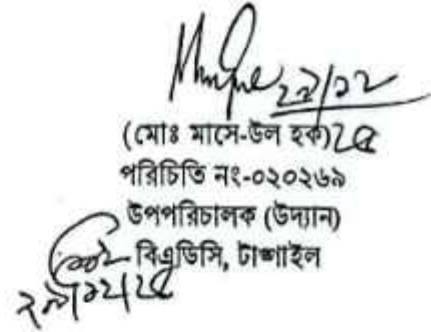 ২২/১২
(মোঃ মাসে-উল হক) ২৫
পরিচিতি নং-০২০২৬৯
উপপরিচালক (উদ্যান)
বিএডিসি, টাঙ্গাইল